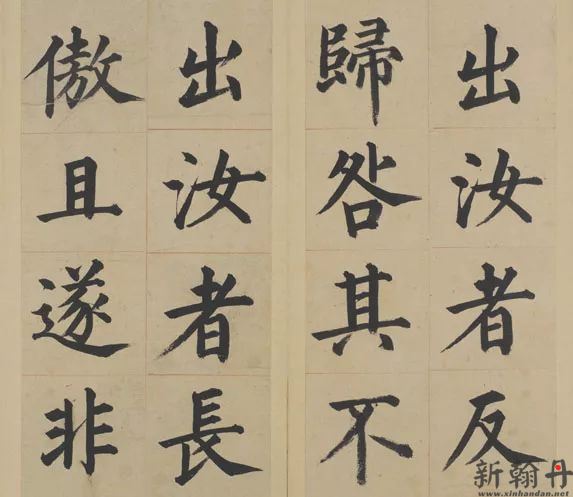 出汝者反
歸咎其不
出汝者長
傲且遂非
新翰丹
www.xinhandan.net